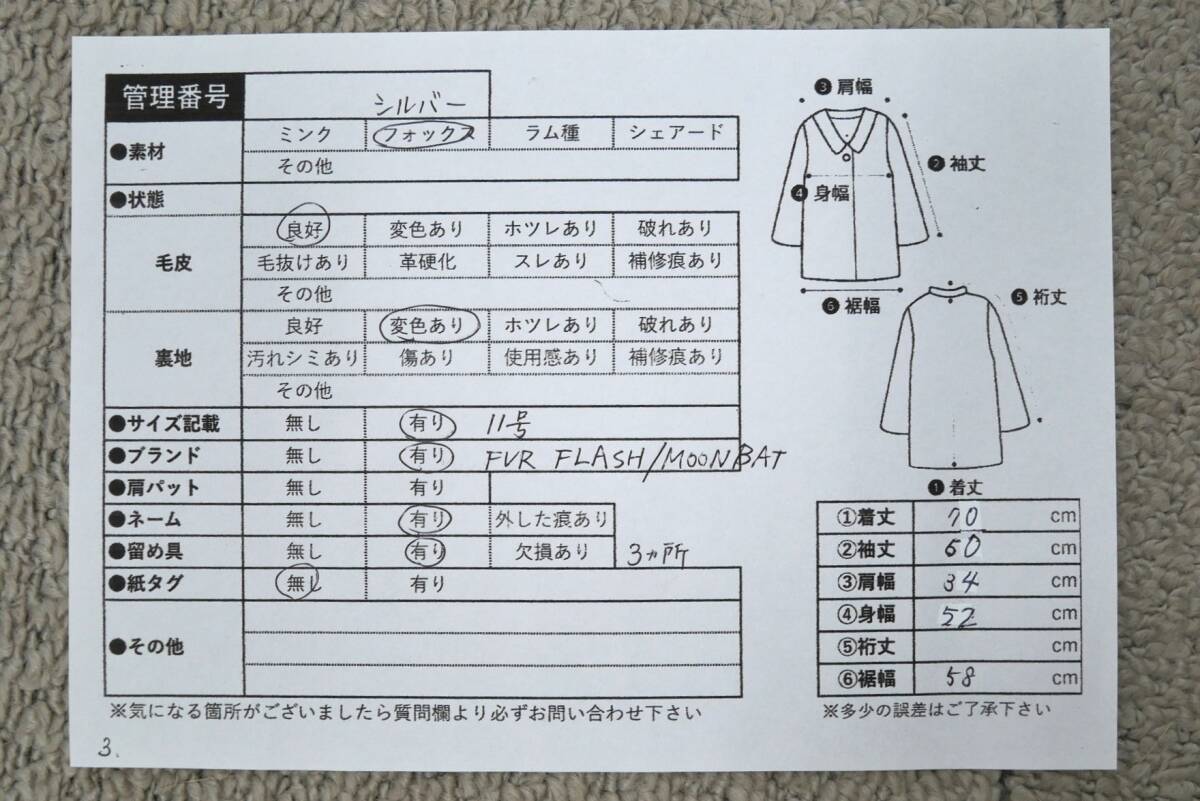 管理番号
シルバー
●素材 ミンク フォックス ラム種 シェアード
その他
●状態
毛皮 良好 変色あり ホツレあり 破れあり
毛抜けあり 革硬化 スレあり 補修痕あり
その他
裏地 良好 変色あり ホツレあり 破れあり
汚れシミあり 傷あり 使用感あり 補修痕あり
その他
●サイズ記載 無し 有り 11号
●ブランド 無し 有り FUR FLASH/MOONBAT
●肩パット 無し 有り
●ネーム 無し 有り 外した痕あり
●留め具 無し 有り 欠損あり 3ヵ所
●紙タグ 無し 有り
●その他
※気になる箇所がございましたら質問欄より必ずお問い合わせ下さい
3.
❸肩幅
❷袖丈
❹身幅
❻裾幅
❺裄丈
❶着丈
①着丈 70 cm
②袖丈 60 cm
③肩幅 34 cm
④身幅 52 cm
⑤裄丈 cm
⑥裾幅 58 cm
※多少の誤差はご了承下さい